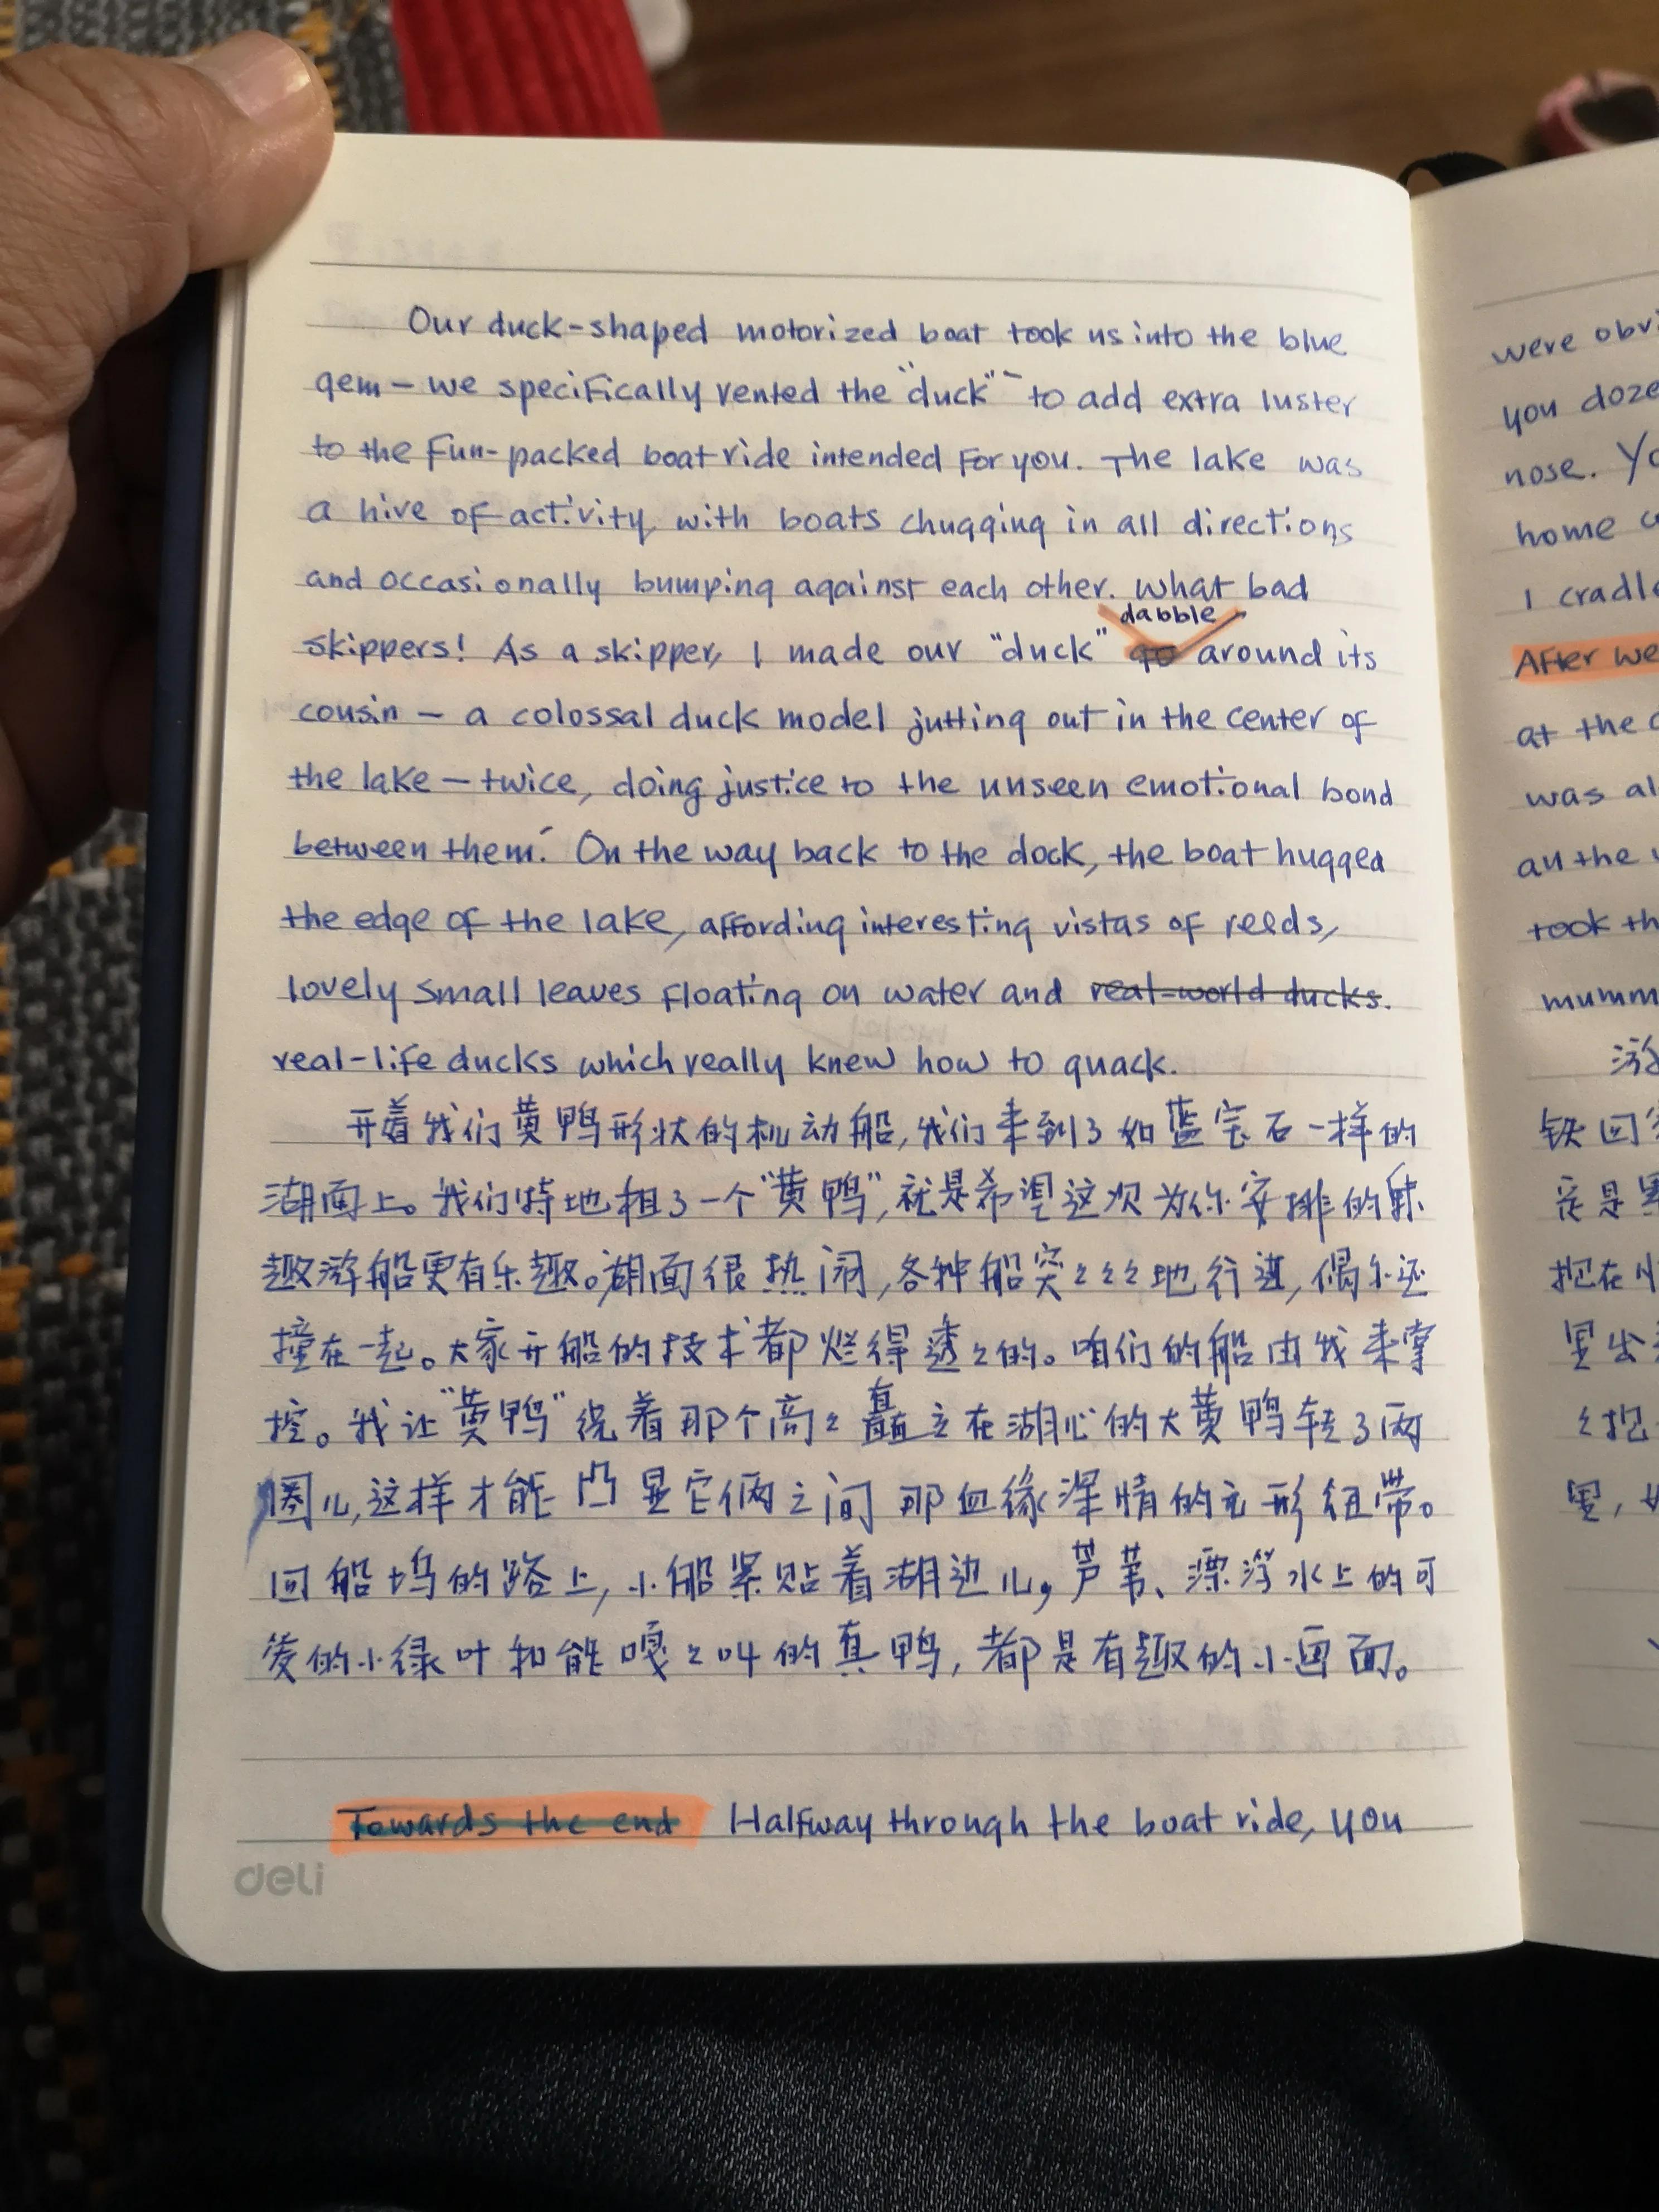 Our duck-shaped motorized boat took us into the blue
gem — we specifically rented the "duck" — to add extra luster
to the fun-packed boat ride intended for you. The lake was
a hive of activity, with boats chugging in all directions
and occasionally bumping against each other. What bad
dabble
skippers! As a skipper, I made our "duck" go around its
cousin — a colossal duck model jutting out in the center of
the lake — twice, doing justice to the unseen emotional bond
between them. On the way back to the dock, the boat hugged
the edge of the lake, affording interesting vistas of reeds,
lovely small leaves floating on water and real-world ducks.
real-life ducks which really knew how to quack.
开着我们黄鸭形状的机动船,我们来到了如蓝宝石一样的
湖面上。我们特地租了一个"黄鸭",就是希望这次为你安排的乐
趣游船更有乐趣。湖面很热闹,各种船突突突突地行进,偶尔还
撞在一起。大家开船的技术都烂得透透的。咱们的船由我来掌
控。我让"黄鸭"绕着那个高高矗立在湖心的大黄鸭转了两
圈儿,这样才能凸显它俩之间那血缘深情的无形纽带。
回船坞的路上,小船紧贴着湖边儿,芦苇、漂浮水上的可
爱的小绿叶和能嘎嘎叫的真鸭,都是有趣的小画面。
Towards the end Halfway through the boat ride, you
deli
were obvi
you doze
nose. Yo
home
I cradle
After we
at the
was al
all the
took th
mumm
游
铁回
把在
里出